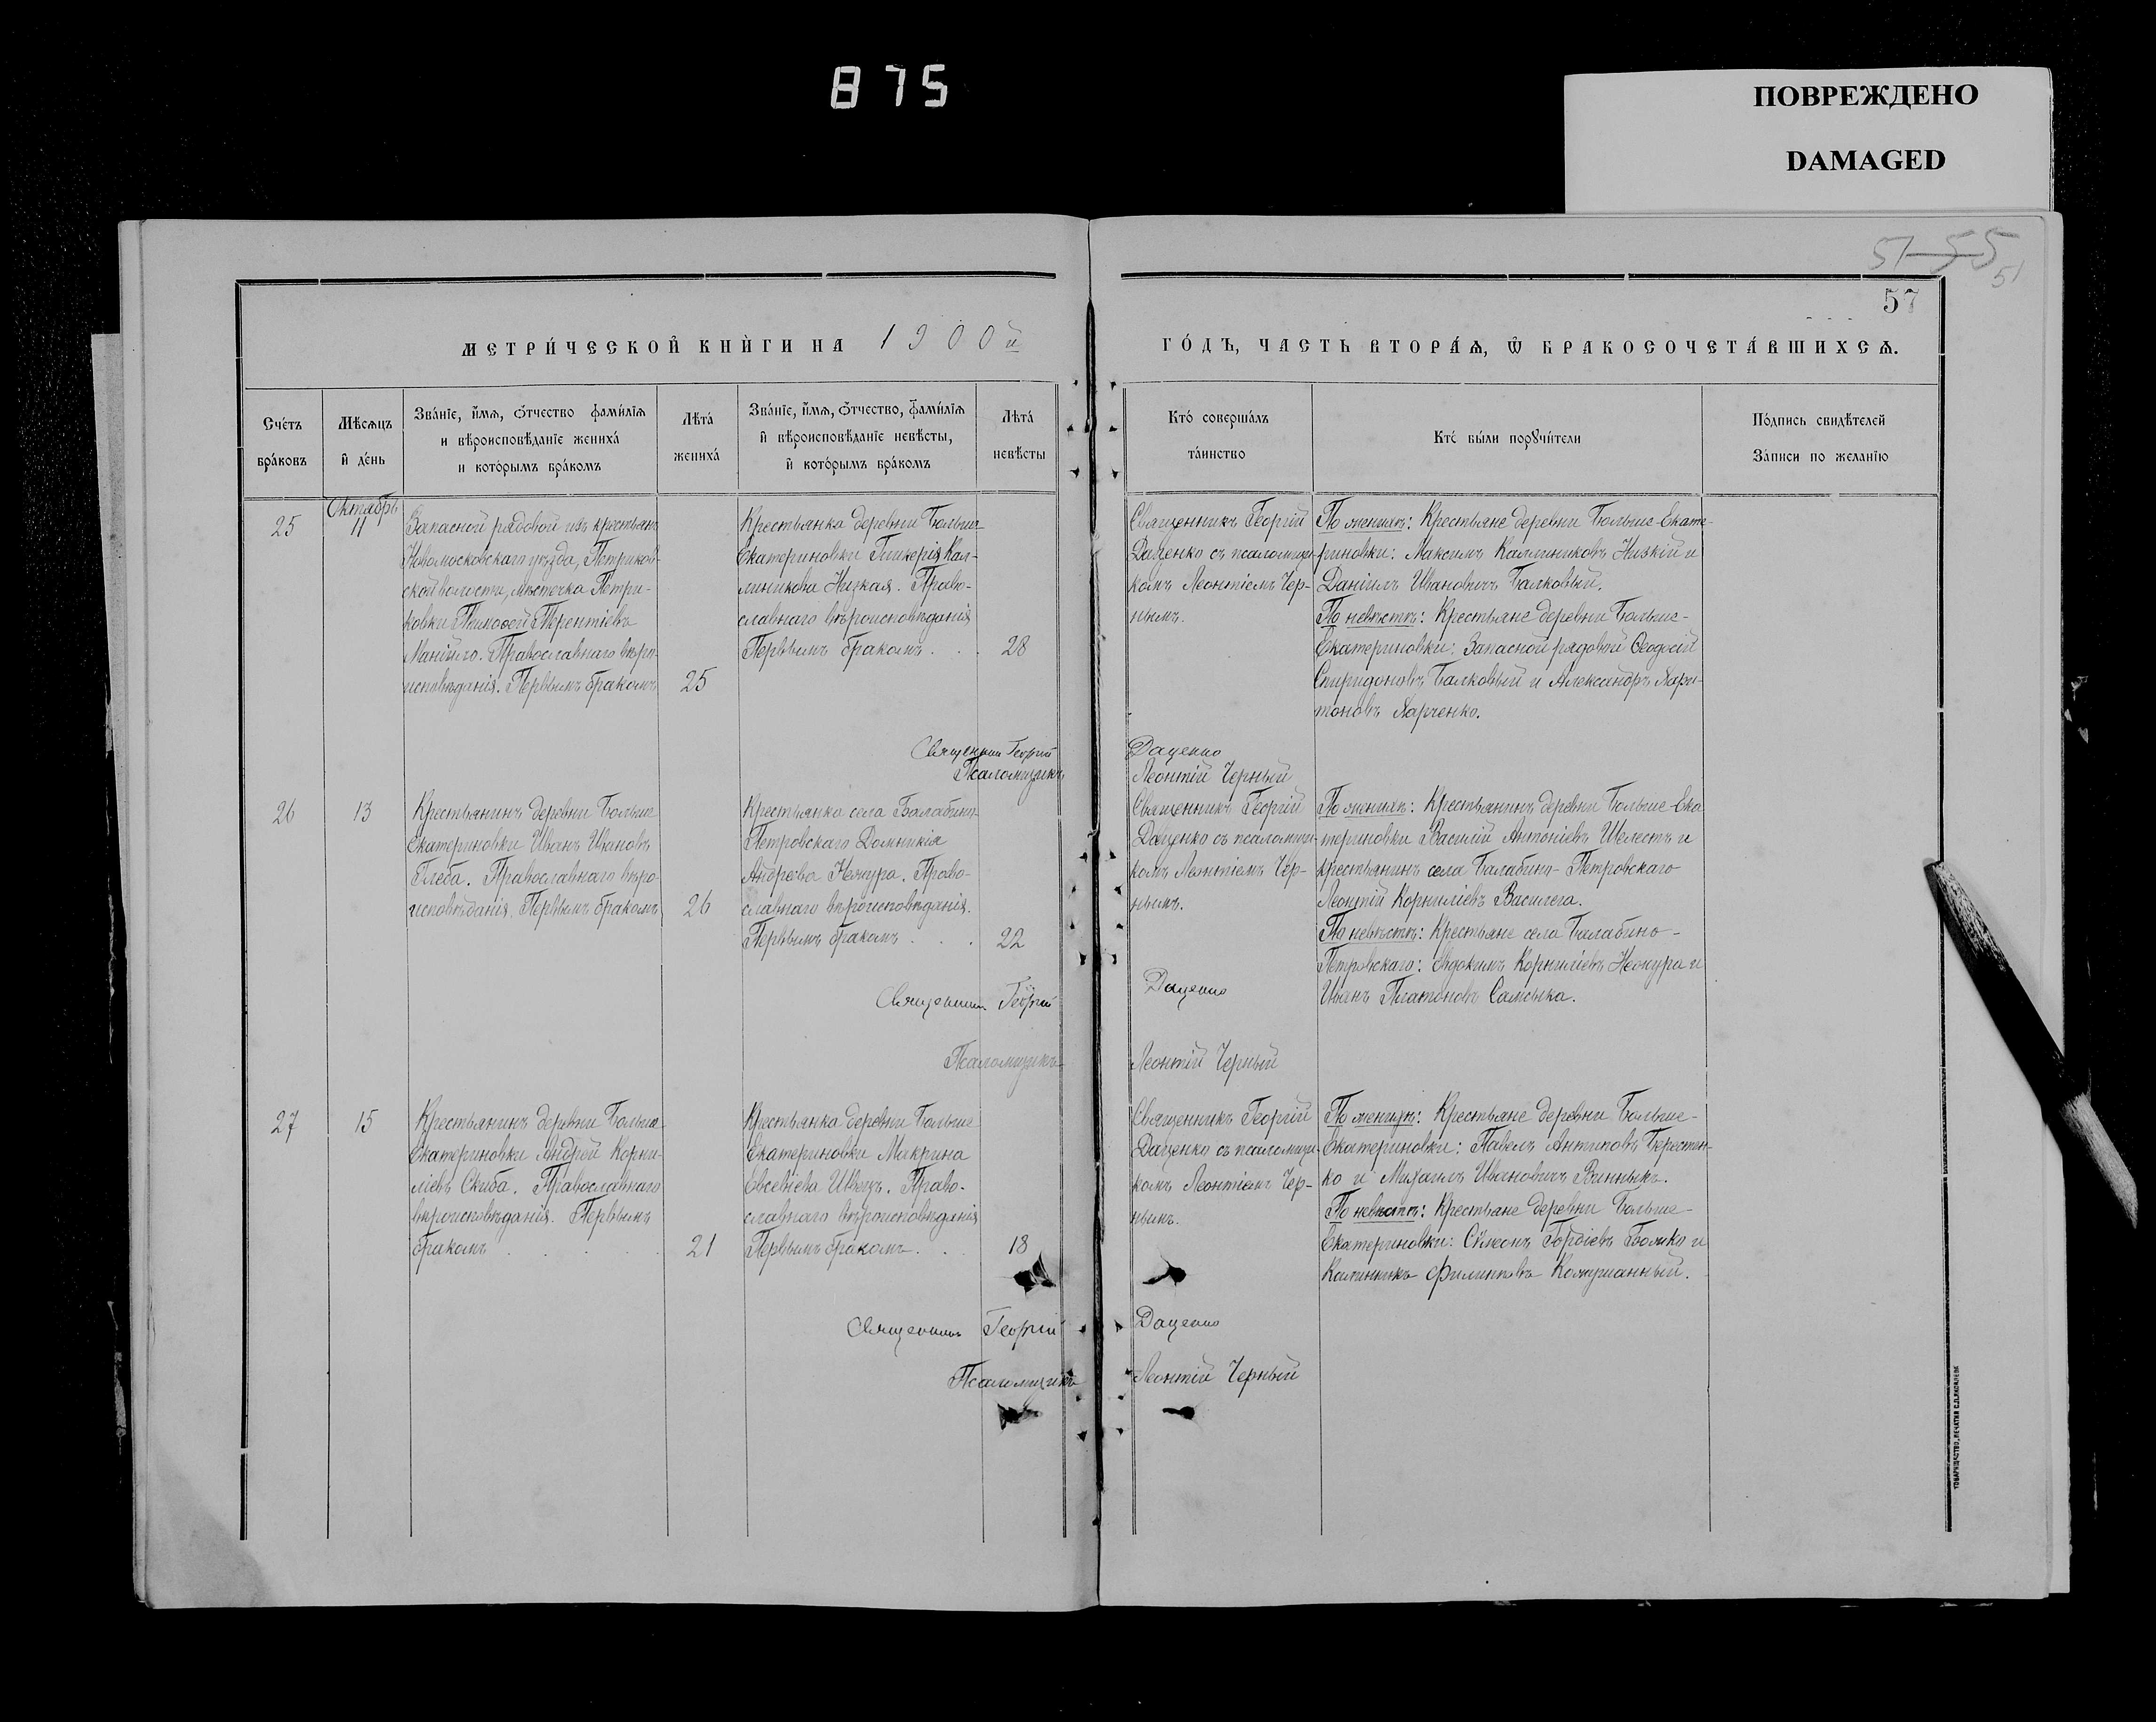 875
ПОВРЕЖДЕНО
DAMAGED
51 55
51
57
МЕТРИ́ЧЕСКОЙ КНИ́ГИ НА 1900й
ГО́ДЪ, ЧАСТЬ ВТОРА́Ѧ, Ѽ БРАКОСОЧЕТА́ВШИХСѦ.
Сче́тъ
бра́ковъ
Мѣ́сѧцъ
и҆ де́нь
Зва́нїе, и҆́мѧ, ѻ҆́тчество фами́лїѧ
и вѣроисповѣ́данїе жениха́
и кото́рымъ бра́комъ
Лѣта́
жениха́
Зва́нїе, и҆́мѧ, ѻ҆́тчество, фами́лїѧ
и҆ вѣроисповѣ́данїе невѣ́сты,
и҆ кото́рымъ бра́комъ
Лѣта́
невѣ́сты
Кто́ соверша́лъ
та́инство
Кто́ бы́ли порꙋчи́тели
По́дпись свидѣ́телей
За́писи по жела́нїю
25
Октябрь
11
Запасной рядовой изъ крестьянъ
Новомосковскаго уѣзда, Петриков-
ской волости, мѣстечка Петри-
ковки Тимоѳей Терентіевъ
Православнаго вѣро-
исповѣданія. Первымъ бракомъ
25
Крестьянка деревни Больше-
Екатериновки Гликерія Кал-
линикова Низкая. Право-
славнаго вѣроисповѣданія
Первымъ бракомъ . .
28
Священникъ Георгій
Даценко съ псаломщи-
комъ Леонтіемъ Чер-
нымъ.
По женихѣ: Крестьяне деревни Больше-Екате-
риновки: Максимъ Каллиниковъ Низкій и
Даніилъ Ивановичъ Балковый.
По невѣстѣ: Крестьяне деревни Больше-
Екатериновки: Запасной рядовой Ѳеодосій
Спиридоновъ Балковый и Александръ Хари-
тоновъ Харченко.
Священникъ Георгій Даценко
Псаломщикъ Леонтій Черный
26
13
Крестьянинъ деревни Больше
Екатериновки Иванъ Ивановъ
Глеба. Православнаго вѣро-
исповѣданія. Первымъ бракомъ
26
Крестьянка села Балабино-
Петровскаго Домникія
Андреева Нежура. Право-
славнаго вѣроисповѣданія.
Первымъ бракомъ . . .
22
Священникъ Георгій
Даценко съ псаломщи-
комъ Леонтіемъ Чер-
нымъ.
По женихѣ: Крестьянинъ деревни Больше-Ека
териновки Василій Антоніевъ Шелестъ и
крестьянинъ села Балабино-Петровскаго
Леонтій Корниліевъ Василега.
По невѣстѣ: Крестьяне села Балабино-
Петровскаго: Евдокимъ Корниліевъ Нежура и
Иванъ Платоновъ
Священникъ Георгій Даценко
Псаломщикъ Леонтій Черный
27
15
Крестьянинъ деревни Больше-
Екатериновки Андрей Корни-
ліевъ Скиба. Православнаго
вѣроисповѣданія. Первымъ
бракомъ . . . . .
21
Крестьянка деревни Больше
Екатериновки Макрина
Евсевіева Швецъ. Право-
славнаго вѣроисповѣданія
Первымъ бракомъ . .
18
Священникъ Георгій
Даценко съ псаломщи-
комъ Леонтіемъ Чер-
нымъ.
По женихѣ: Крестьяне деревни Больше-
Екатериновки: Павелъ Антиповъ Берестен-
ко и Михаилъ Ивановичъ Винныкъ.
По невѣстѣ: Крестьяне деревни Больше-
Екатериновки: Сѵмеонъ Гордіевъ Божко и
Калиникъ Филиповъ Кожушанный.
Священникъ Георгій Даценко
Псаломщикъ Леонтій Черный
ТОВАРИЩЕСТВО „ПЕЧАТНЯ С.П.ЯКОВЛЕВА